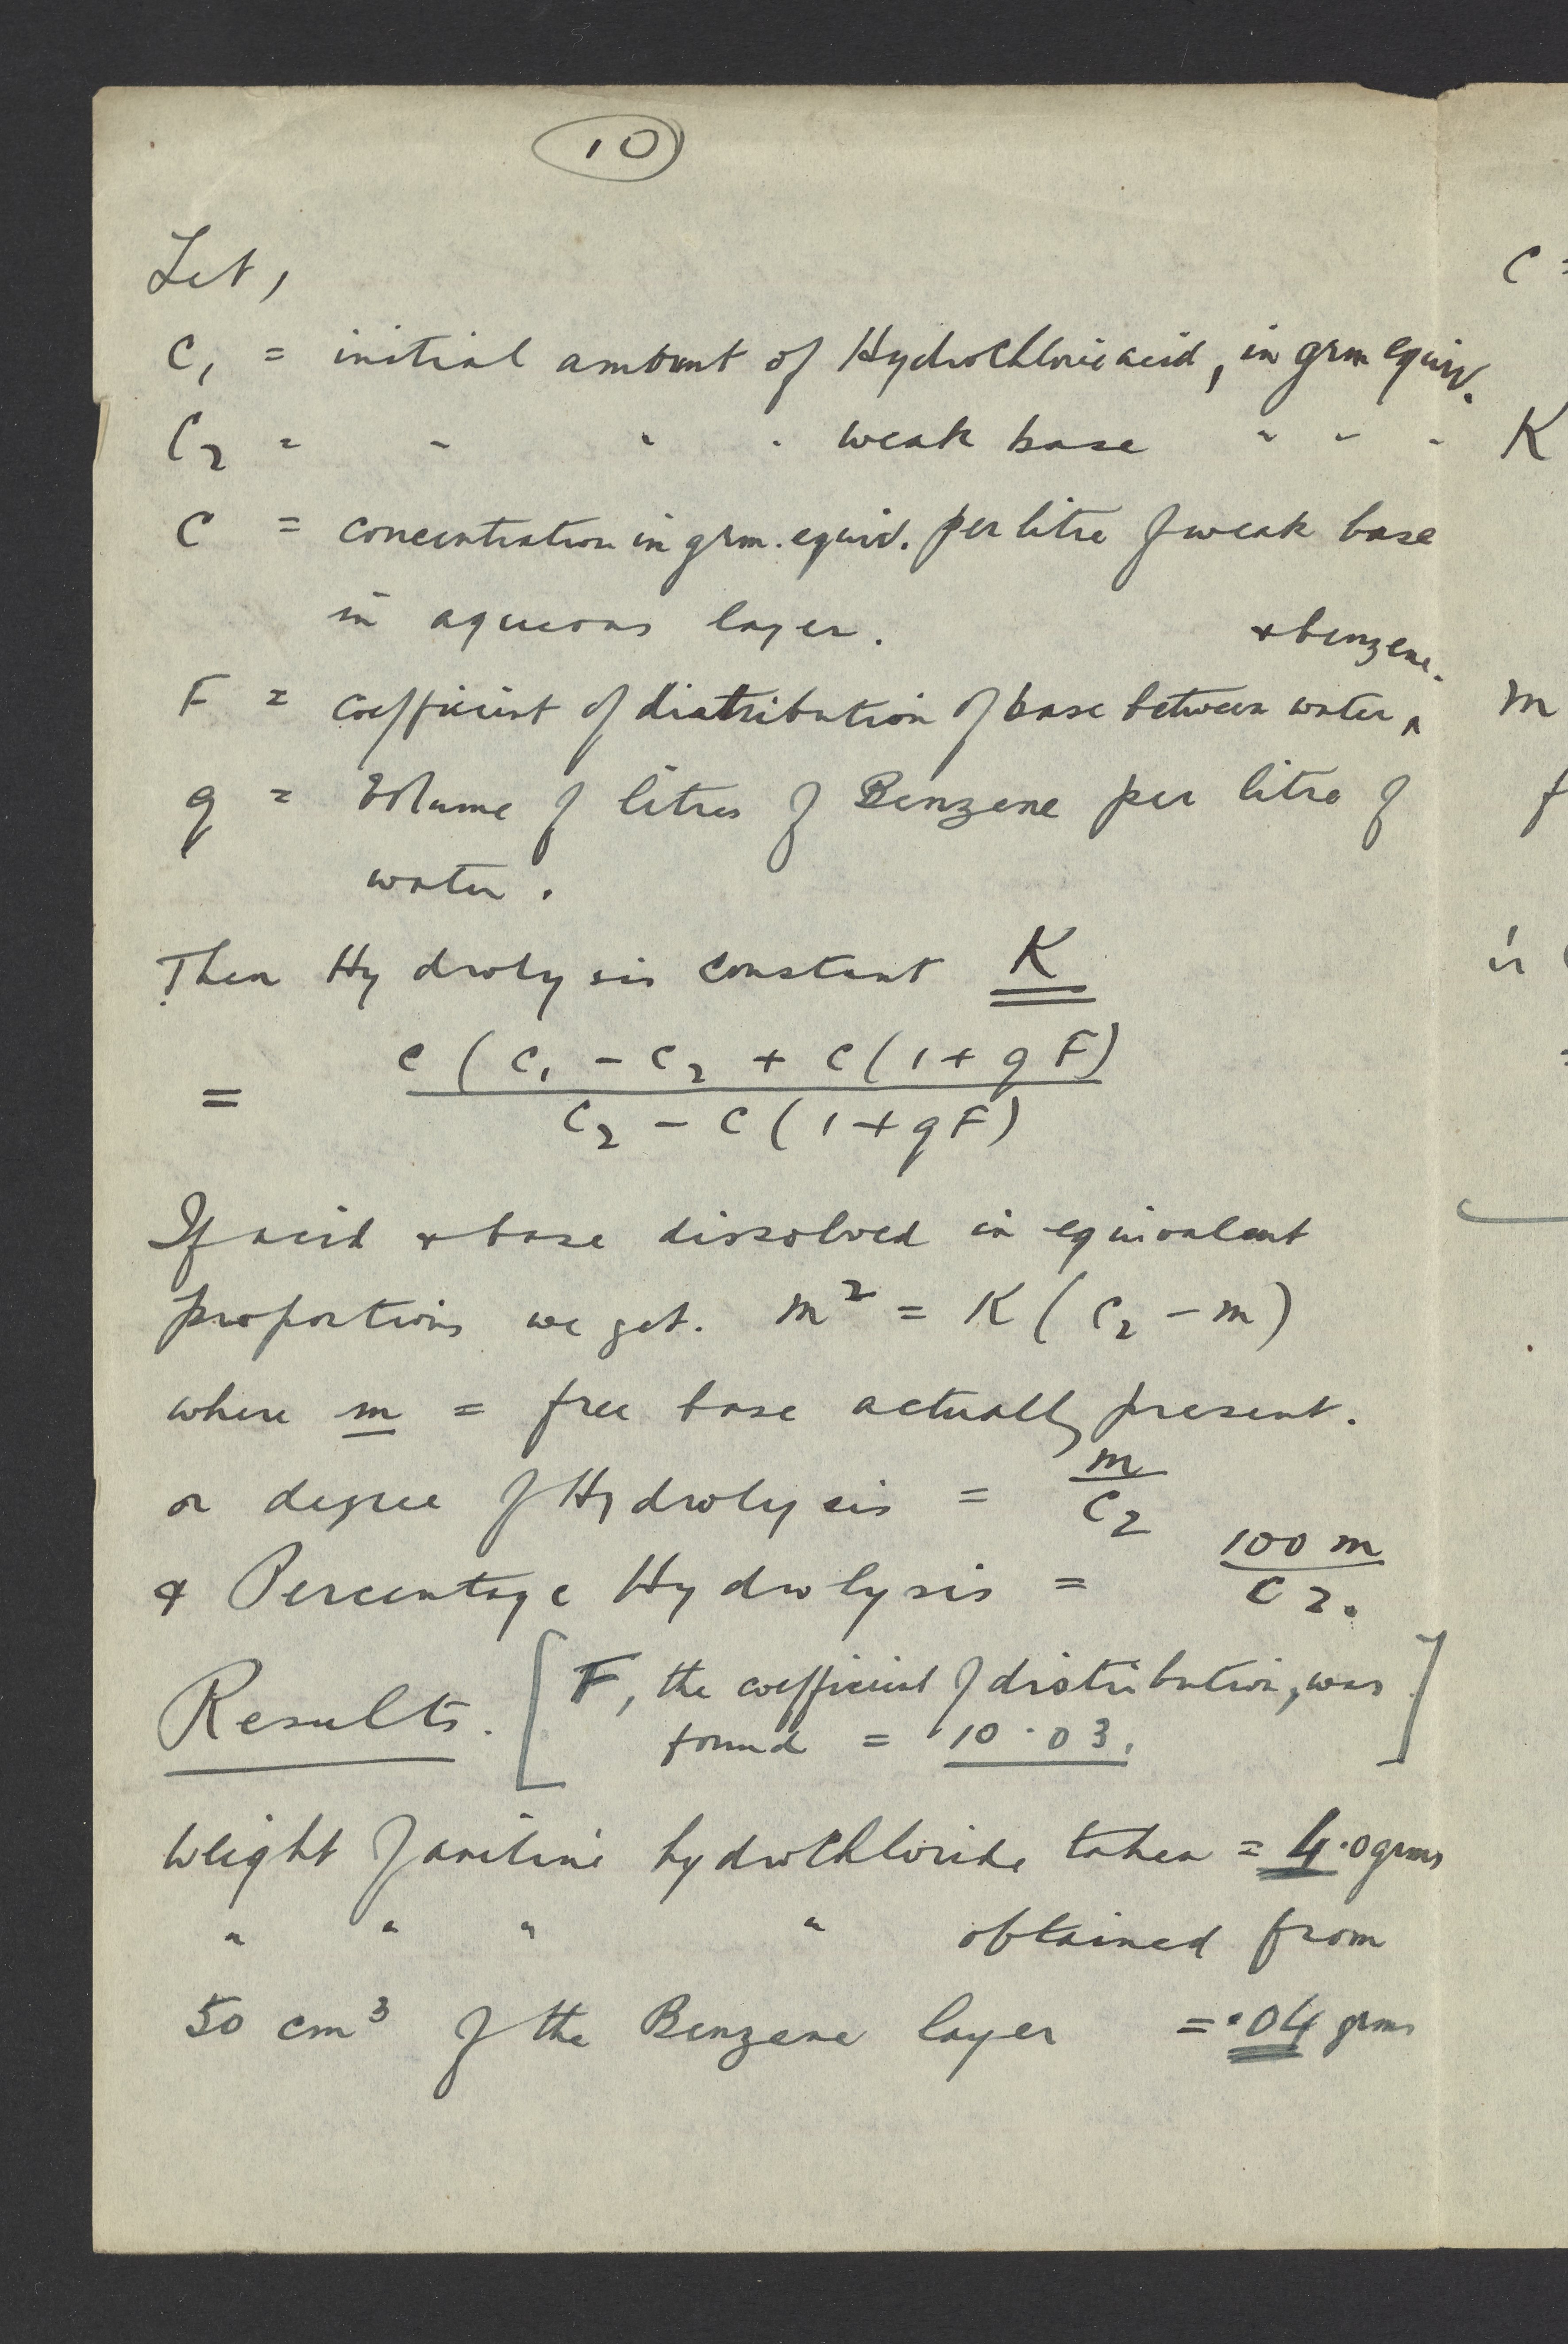 10
Let,
C₁ = initial amount of Hydrochloric acid, in grm equiv.
C₂ = " " " weak base " " "
C = concentration in grm. equiv. per litre of weak base
in aqueous layer.
& benzene.
F = coefficient of distribution of base between water ^
q = Volume of litres of Benzene per litre of
water.
Then Hydrolysis constant K
= C ( C₁ - C₂ + C ( 1 + q F )
C₂ - C ( 1 + q F )
If acid & base dissolved in equivalent
proportions we get. m² = K ( C₂ - m )
where m = free base actually present.
or degree of Hydrolysis = m / C₂
& Percentage Hydrolysis = 100 m / C₂.
Results. [ F, the coefficient of distribution, was
found = 10·03. ]
Weight of aniline hydrochloride taken = 4·0 grms
" " " " obtained from
50 cm³ of the Benzene layer = ·04 grms
C =
K
m
f
is